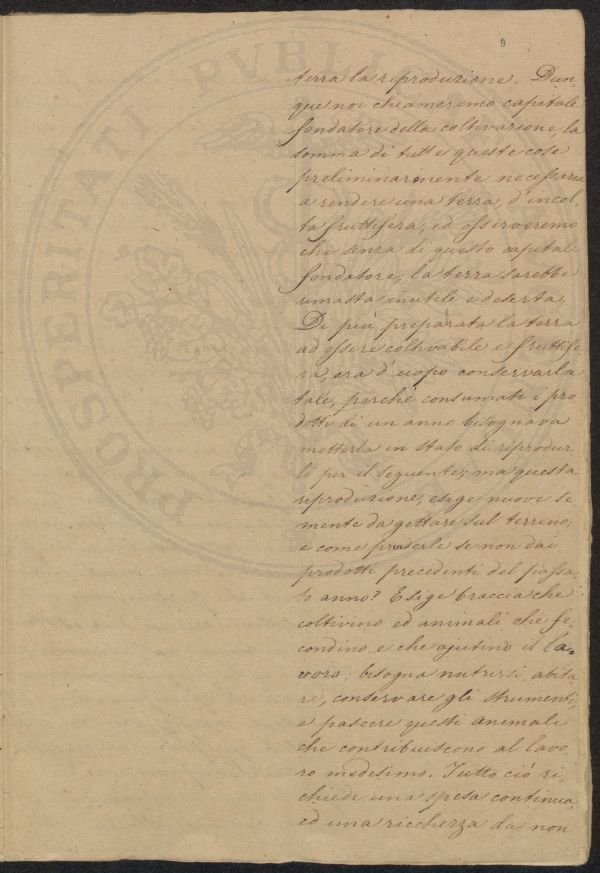 9
terra la riproduzione. Dun-
que noi chiameremo capitale
fondatore della coltivazione, la
somma di tutte queste cose
preliminarmente necessaria
a rendere una terra, d'incol-
ta fruttifera, ed osserveremo
che senza di questo capitale
fondatore, la terra sarebbe
rimasta inutile e deserta.
Di più preparata la terra
ad essere coltivabile e fruttife
ra, era d'uopo conservarla
tale, perchè consumati i pro
dotti di un anno bisognava
metterla in stato di riprodur
li per il seguente; ma questa
riproduzione, esige nuove se
mente da gettare sul terreno;
e come prenderle se non dai
prodotti precedenti del passa-
to anno? Esige braccia che
coltivino ed animali che fe-
condino e che ajutino il la-
voro; bisogna nutrirsi, abita
re, conservare gli strumenti,
e pascere questi animali
che contribuiscono al lavo-
ro medesimo. Tutto ciò ri-
chiede una spesa continua,
ed una ricchezza da non
PROSPERITATI PVBLIC